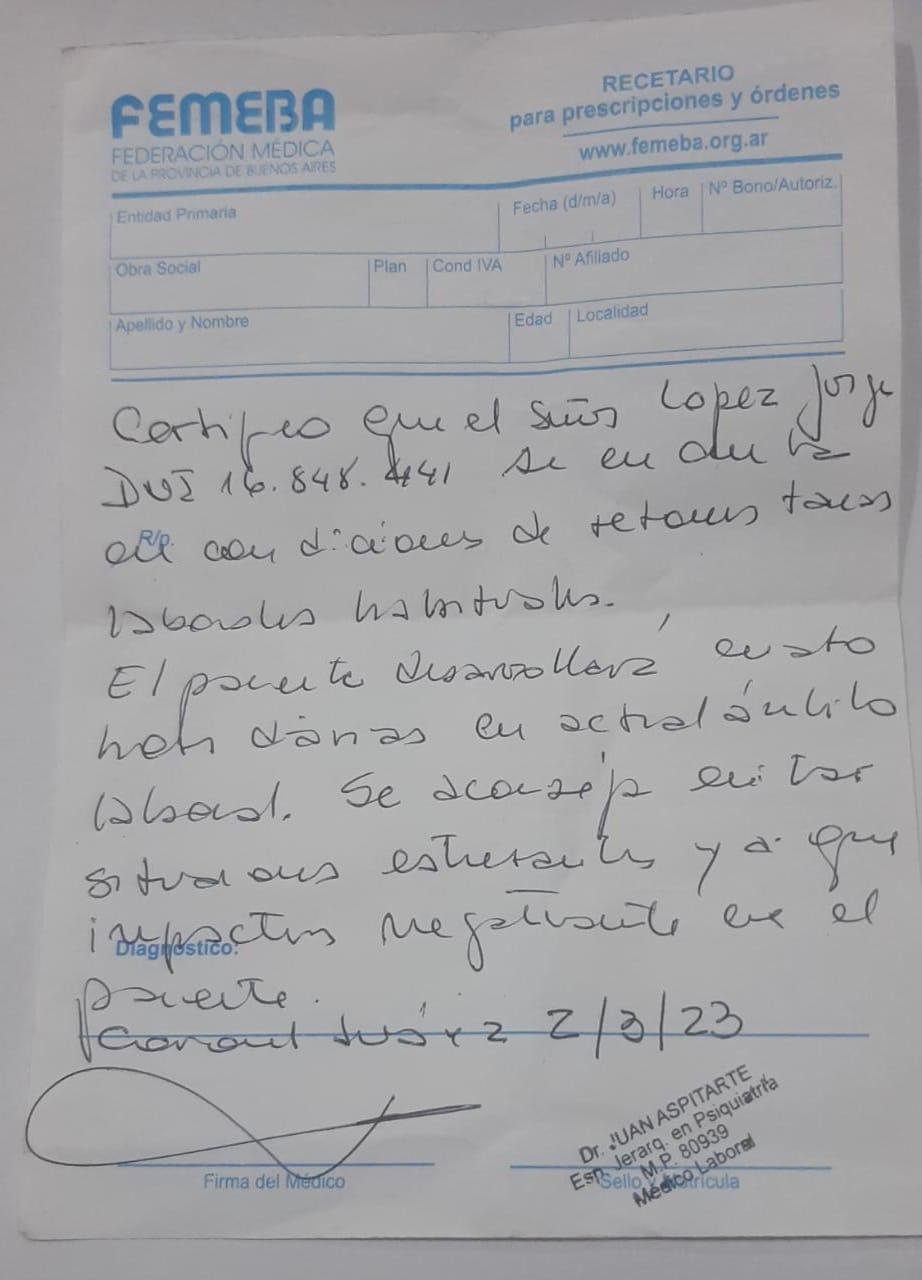 FEMEBA
FEDERACIÓN MÉDICA
DE LA PROVINCIA DE BUENOS AIRES
RECETARIO
para prescripciones y órdenes
www.femeba.org.ar
Entidad Primaria
Fecha (d/m/a)
Hora
Nº Bono/Autoriz.
Obra Social
Plan
Cond IVA
Nº Afiliado
Apellido y Nombre
Edad
Localidad
Certifico que el señor Lopez Jorge
DNI 16.848.441 se encuentra
R/p.
en condiciones de retomar tareas
laborales habituales.
El paciente desarrollará cuatro
horas diarias en actual ámbito
laboral. Se aconseja evitar
situaciones estresantes ya que
impactan negativamente en el
Diagnóstico:
paciente.
Coronel Suárez 2/3/23
Firma del Médico
Sello y Matrícula
Dr. JUAN ASPITARTE
Esp. Jerarq. en Psiquiatría
M.P. 80939
Médico Laboral